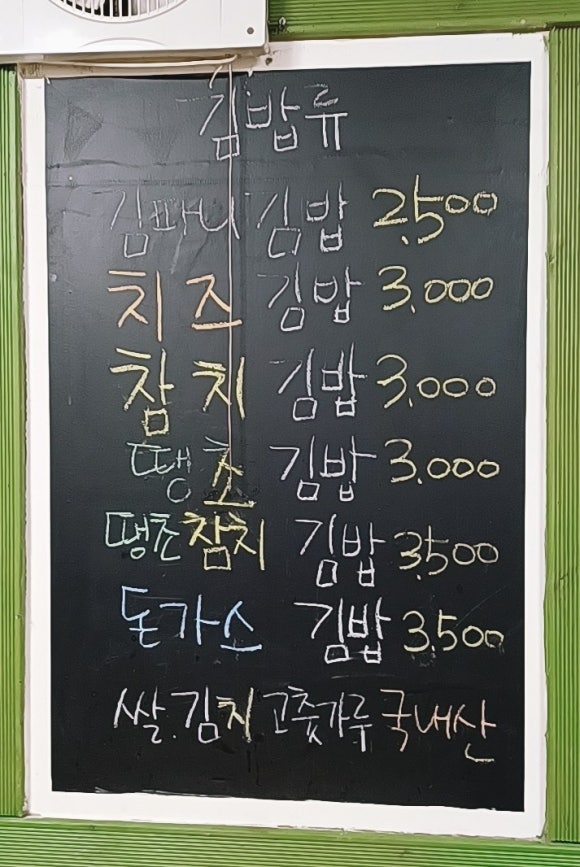 김밥류
김파니 김밥 2,500
치즈 김밥 3.000
참치 김밥 3.000
땡초 김밥 3.000
땡초참치 김밥 3,500
돈가소 김밥 3.500
쌀.김치 고춧가루 국내산